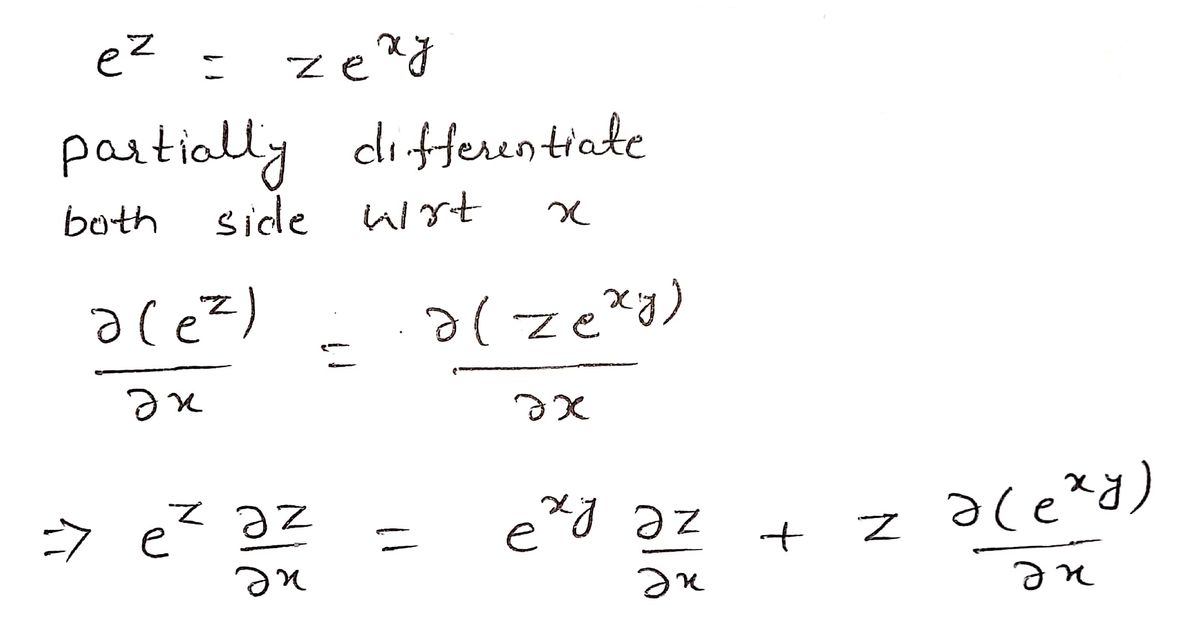 e^z = ze^xy
partially differentiate
both side wrt x
∂(e^z)/∂x = ∂(ze^xy)/∂x
⇒ e^z ∂z/∂x = e^xy ∂z/∂x + z ∂(e^xy)/∂x